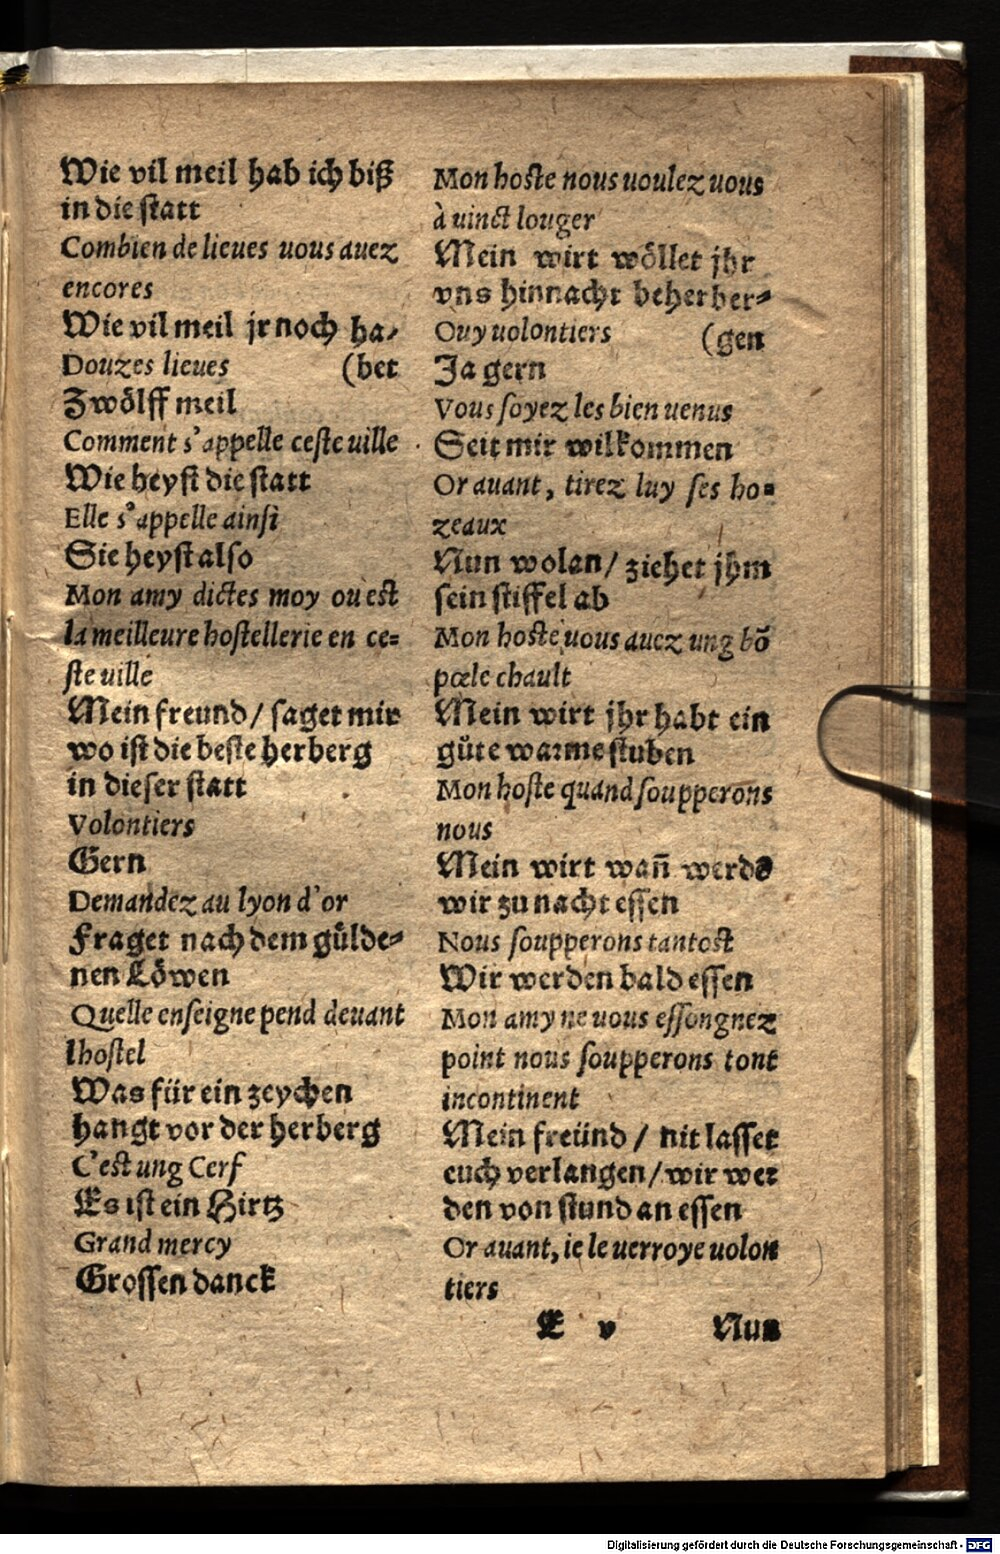 Wie vil meil hab ich biß
in die statt
Combien de lieues uous auez
encores
Wie vil meil jr noch ha-
Douzes lieues (bet
Zwoͤlff meil
Comment s'appelle ceste uille
Wie heyst die statt
Elle s'appelle ainsi
Sie heyst also
Mon amy dictes moy ou est
la meilleure hostellerie en ce=
ste uille
Mein freund / saget mir
wo ist die beste herberg
in dieser statt
Volontiers
Gern
Demandez au lyon d'or
Fraget nach dem gülde=
nen Loͤwen
Quelle enseigne pend deuant
lhostel
Was für ein zeychen
hangt vor der herberg
C'est ung Cerf
Es ist ein Hirtz
Grand mercy
Grossen danck
Mon hoste nous uoulez uous
à uinct louger
Mein wirt woͤllet jhr
vns hinnacht beherber=
Ouy uolontiers (gen
Ja gern
Vous soyez les bien uenus
Seit mir wilkommen
Or auant, tirez luy ses ho=
zeaux
Nun wolan / ziehet jhm
sein stiffel ab
Mon hoste uous auez ung bõ
pœle chault
Mein wirt jhr habt ein
gůte warme stuben
Mon hoste quand soupperons
nous
Mein wirt wañ werdẽ
wir zu nacht essen
Nous soupperons tantost
Wir werden bald essen
Mon amy ne uous essongnez
point nous soupperons tont
incontinent
Mein freünd / nit lasset
euch verlangen / wir wer
den von stund an essen
Or auant, ie le uerroye uolon
tiers
E v Nun
Digitalisierung gefördert durch die Deutsche Forschungsgemeinschaft - DFG